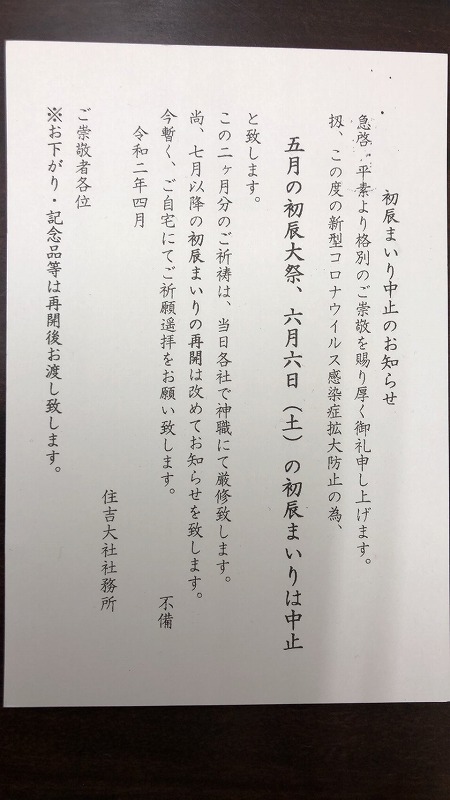 初辰まいり中止のお知らせ
急啓、平素より格別のご崇敬を賜り厚く御礼申し上げます。
扨、この度の新型コロナウイルス感染症拡大防止の為、
五月の初辰大祭、六月六日（土）の初辰まいりは中止
と致します。
この二ヶ月分のご祈祷は、当日各社で神職にて厳修致します。
尚、七月以降の初辰まいりの再開は改めてお知らせを致します。
今暫く、ご自宅にてご祈願遥拝をお願い致します。
不備
令和二年四月
住吉大社社務所
ご崇敬者各位
※お下がり・記念品等は再開後お渡し致します。